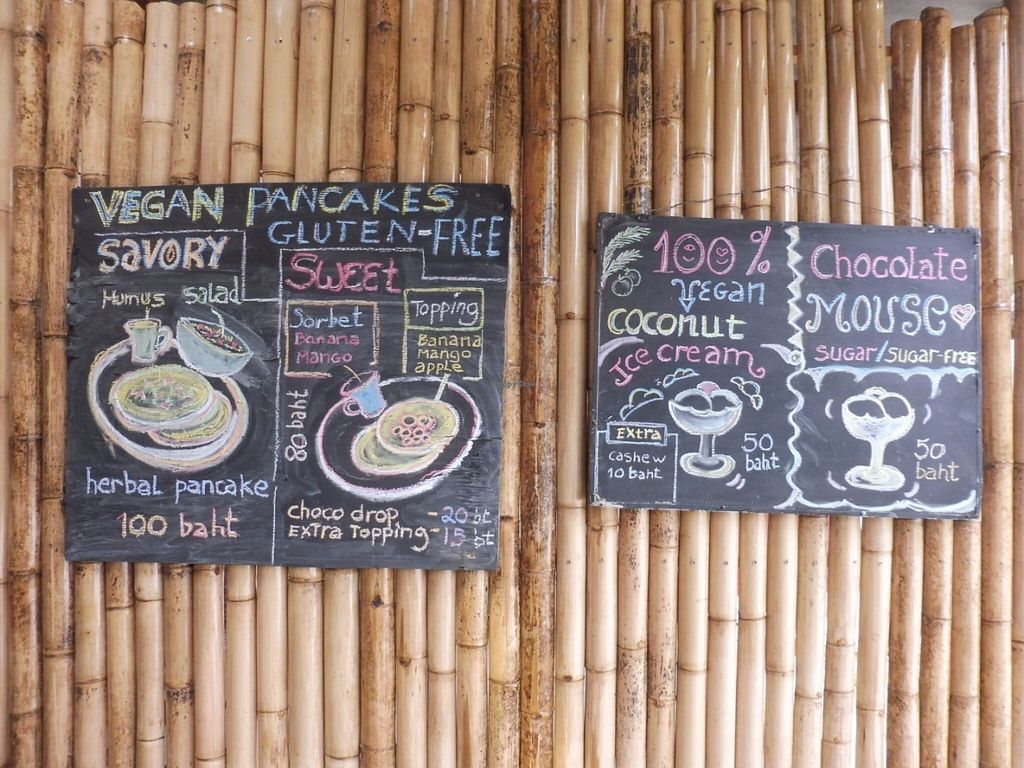 VEGAN PANCAKES
GLUTEN-FREE
SAVORY
Humus
salad
herbal pancake
100 baht
SWEET
Sorbet
Banana
Mango
Topping
Banana
Mango
apple
80 baht
choco drop - 20 bt
EXTRA TOPPING - 15 bt
100 %
VEGAN
coconut
Ice cream
Extra
cashew
10 baht
50
baht
Chocolate
MOUSE
SUGAR/SUGAR-FREE
50
baht